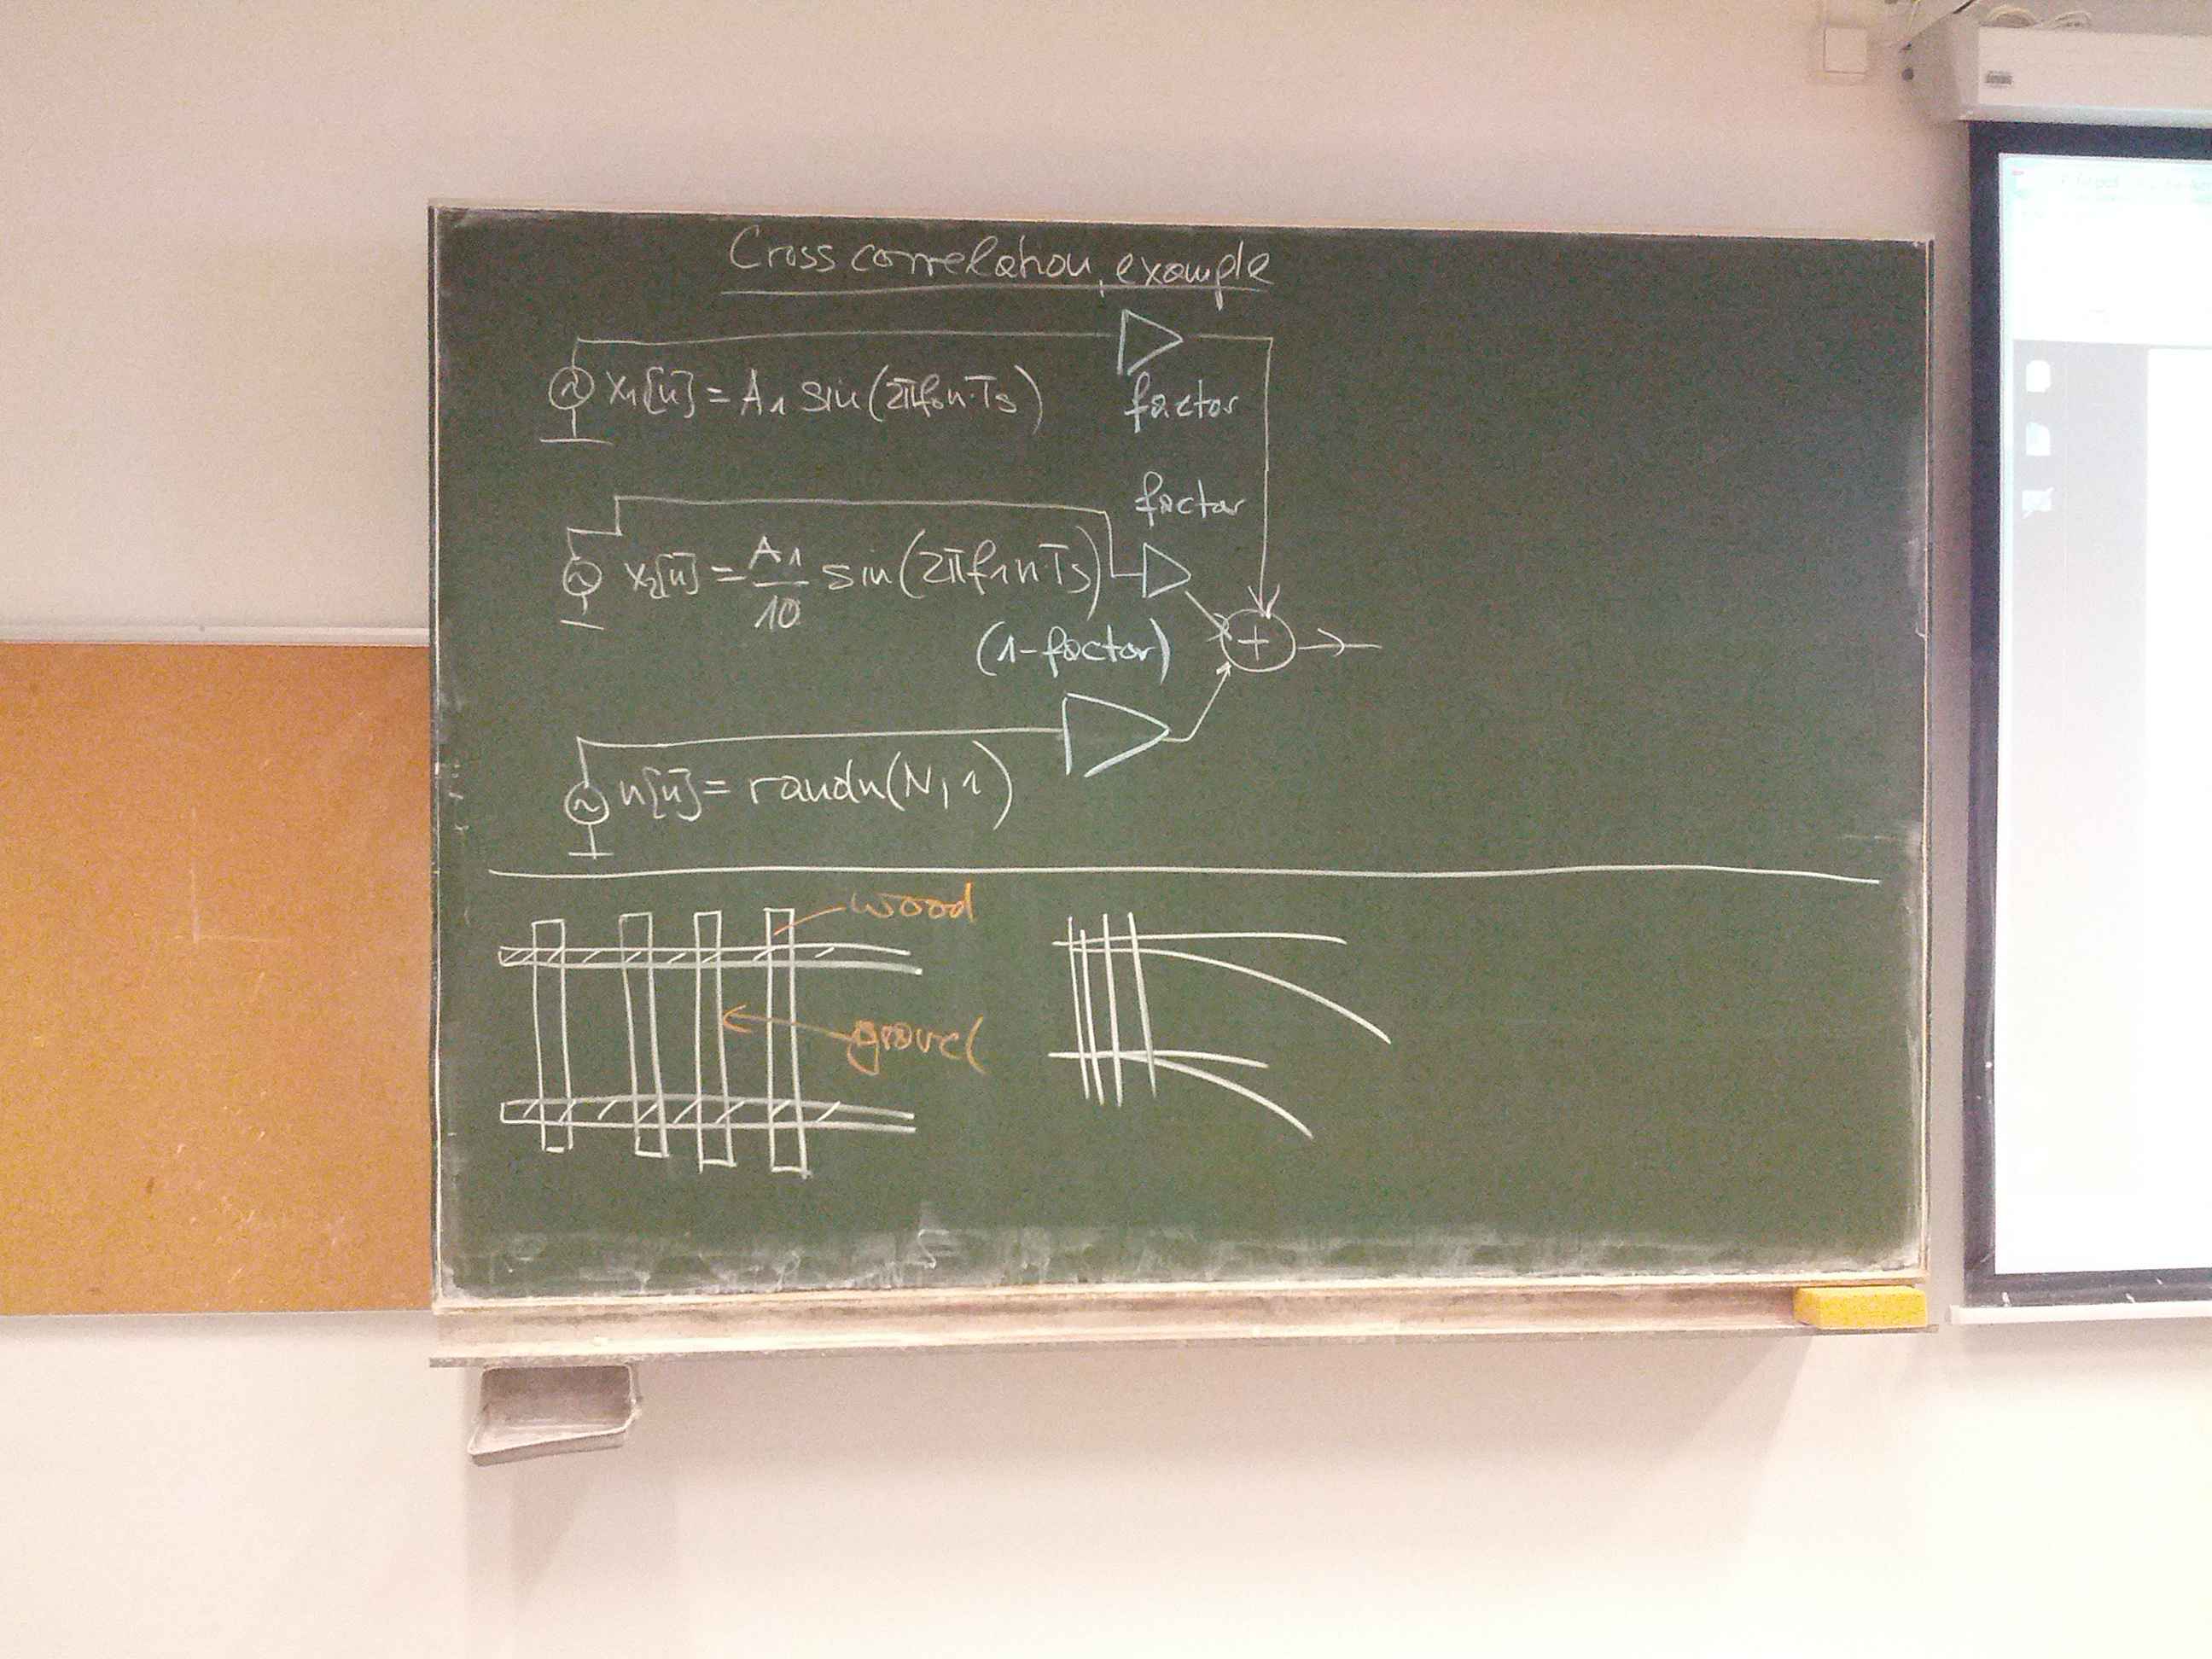 Cross correlation, example
x1[n] = A1 sin(2πf0n·Ts)
factor
factor
x2[n] = A1/10 sin(2πf1nTs)
(1-factor)
+
n[n] = randn(N,1)
wood
gravel